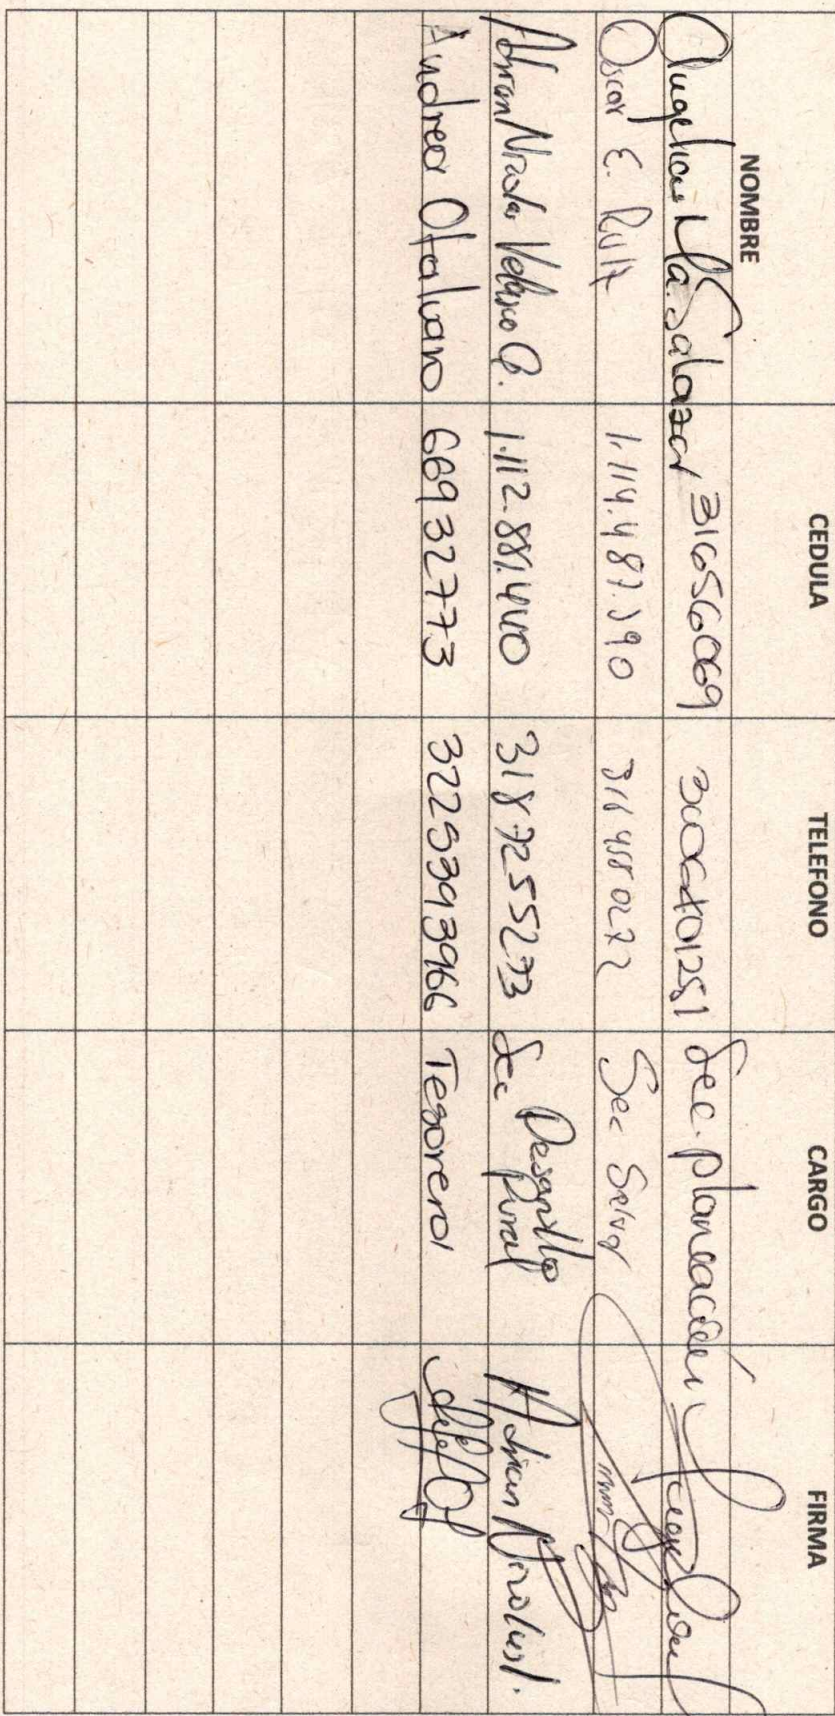 NOMBRE CEDULA TELEFONO CARGO FIRMA
Angelica Ma. Salazar 31656069 3006401251 Sec. planeación
Oscar E. Ruiz 1.114.487.390 316 458 0272 Sec Salud
Adrian Nicolas Velasco G. 1.112.881.440 318 7255273 Sec Desarrollo Rural Adrian Nicolas V.
Andrea Otalvaro 66932773 3225393966 Tesorera